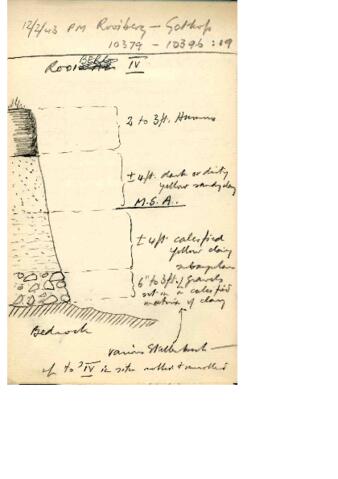 12/2/43 PM Rooiberg —
10379 – 10396 : 19
ROOI IV
2 to 3 ft. Humus
± 4 ft. dark or dirty
yellow sandy clay
M.S.A.
± 4 ft. calcified
yellow
6" to 3 ft. of gravels
set in a calcified
matrix of clay
Bedrock
various Stellenbosch —
up to IV in situ rolled + unrolled